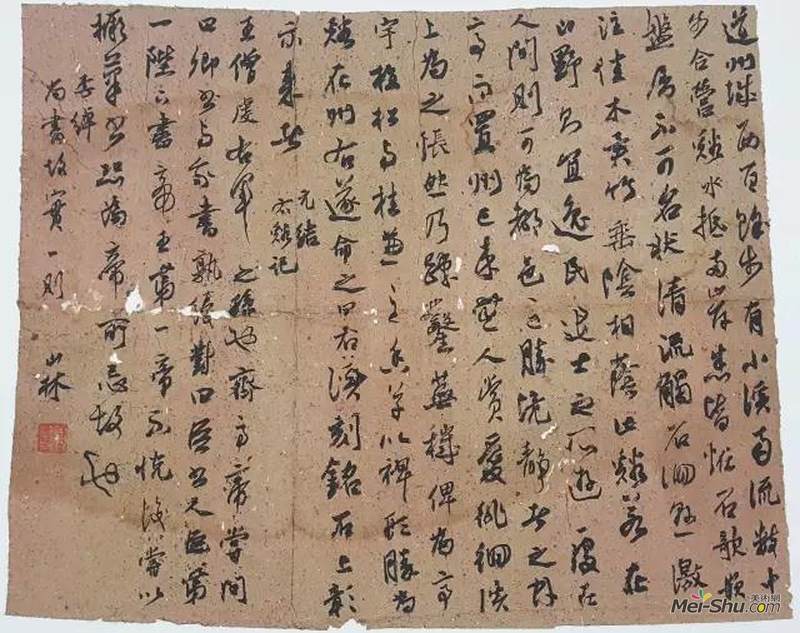 道州城西百餘步有小溪南流數十
步合營谿水抵兩岸悉皆怪石欹嵌
盤屈不可名狀清流觸石洄懸激
注佳木異竹垂陰相蔭此谿若在
山野則宜逸民退士之所遊處在
人間則可為都邑之勝境靜者之林
亭而置州已來無人賞愛徘徊溪
上為之悵然乃疎鑿蕪穢俾為亭
宇植松與桂兼之香草以裨形勝為
谿在州右遂命之曰右溪刻銘石上彰
示來者
元結
右谿記
王僧虔右軍之孫也齊高帝嘗問
曰卿書與我書孰優對曰臣書人臣第
一陛下書帝王第一帝不悅後嘗以
撅筆書恐為帝所忌故也
李綽
尚書故實一則 山林
美術網
Mei-Shu.com